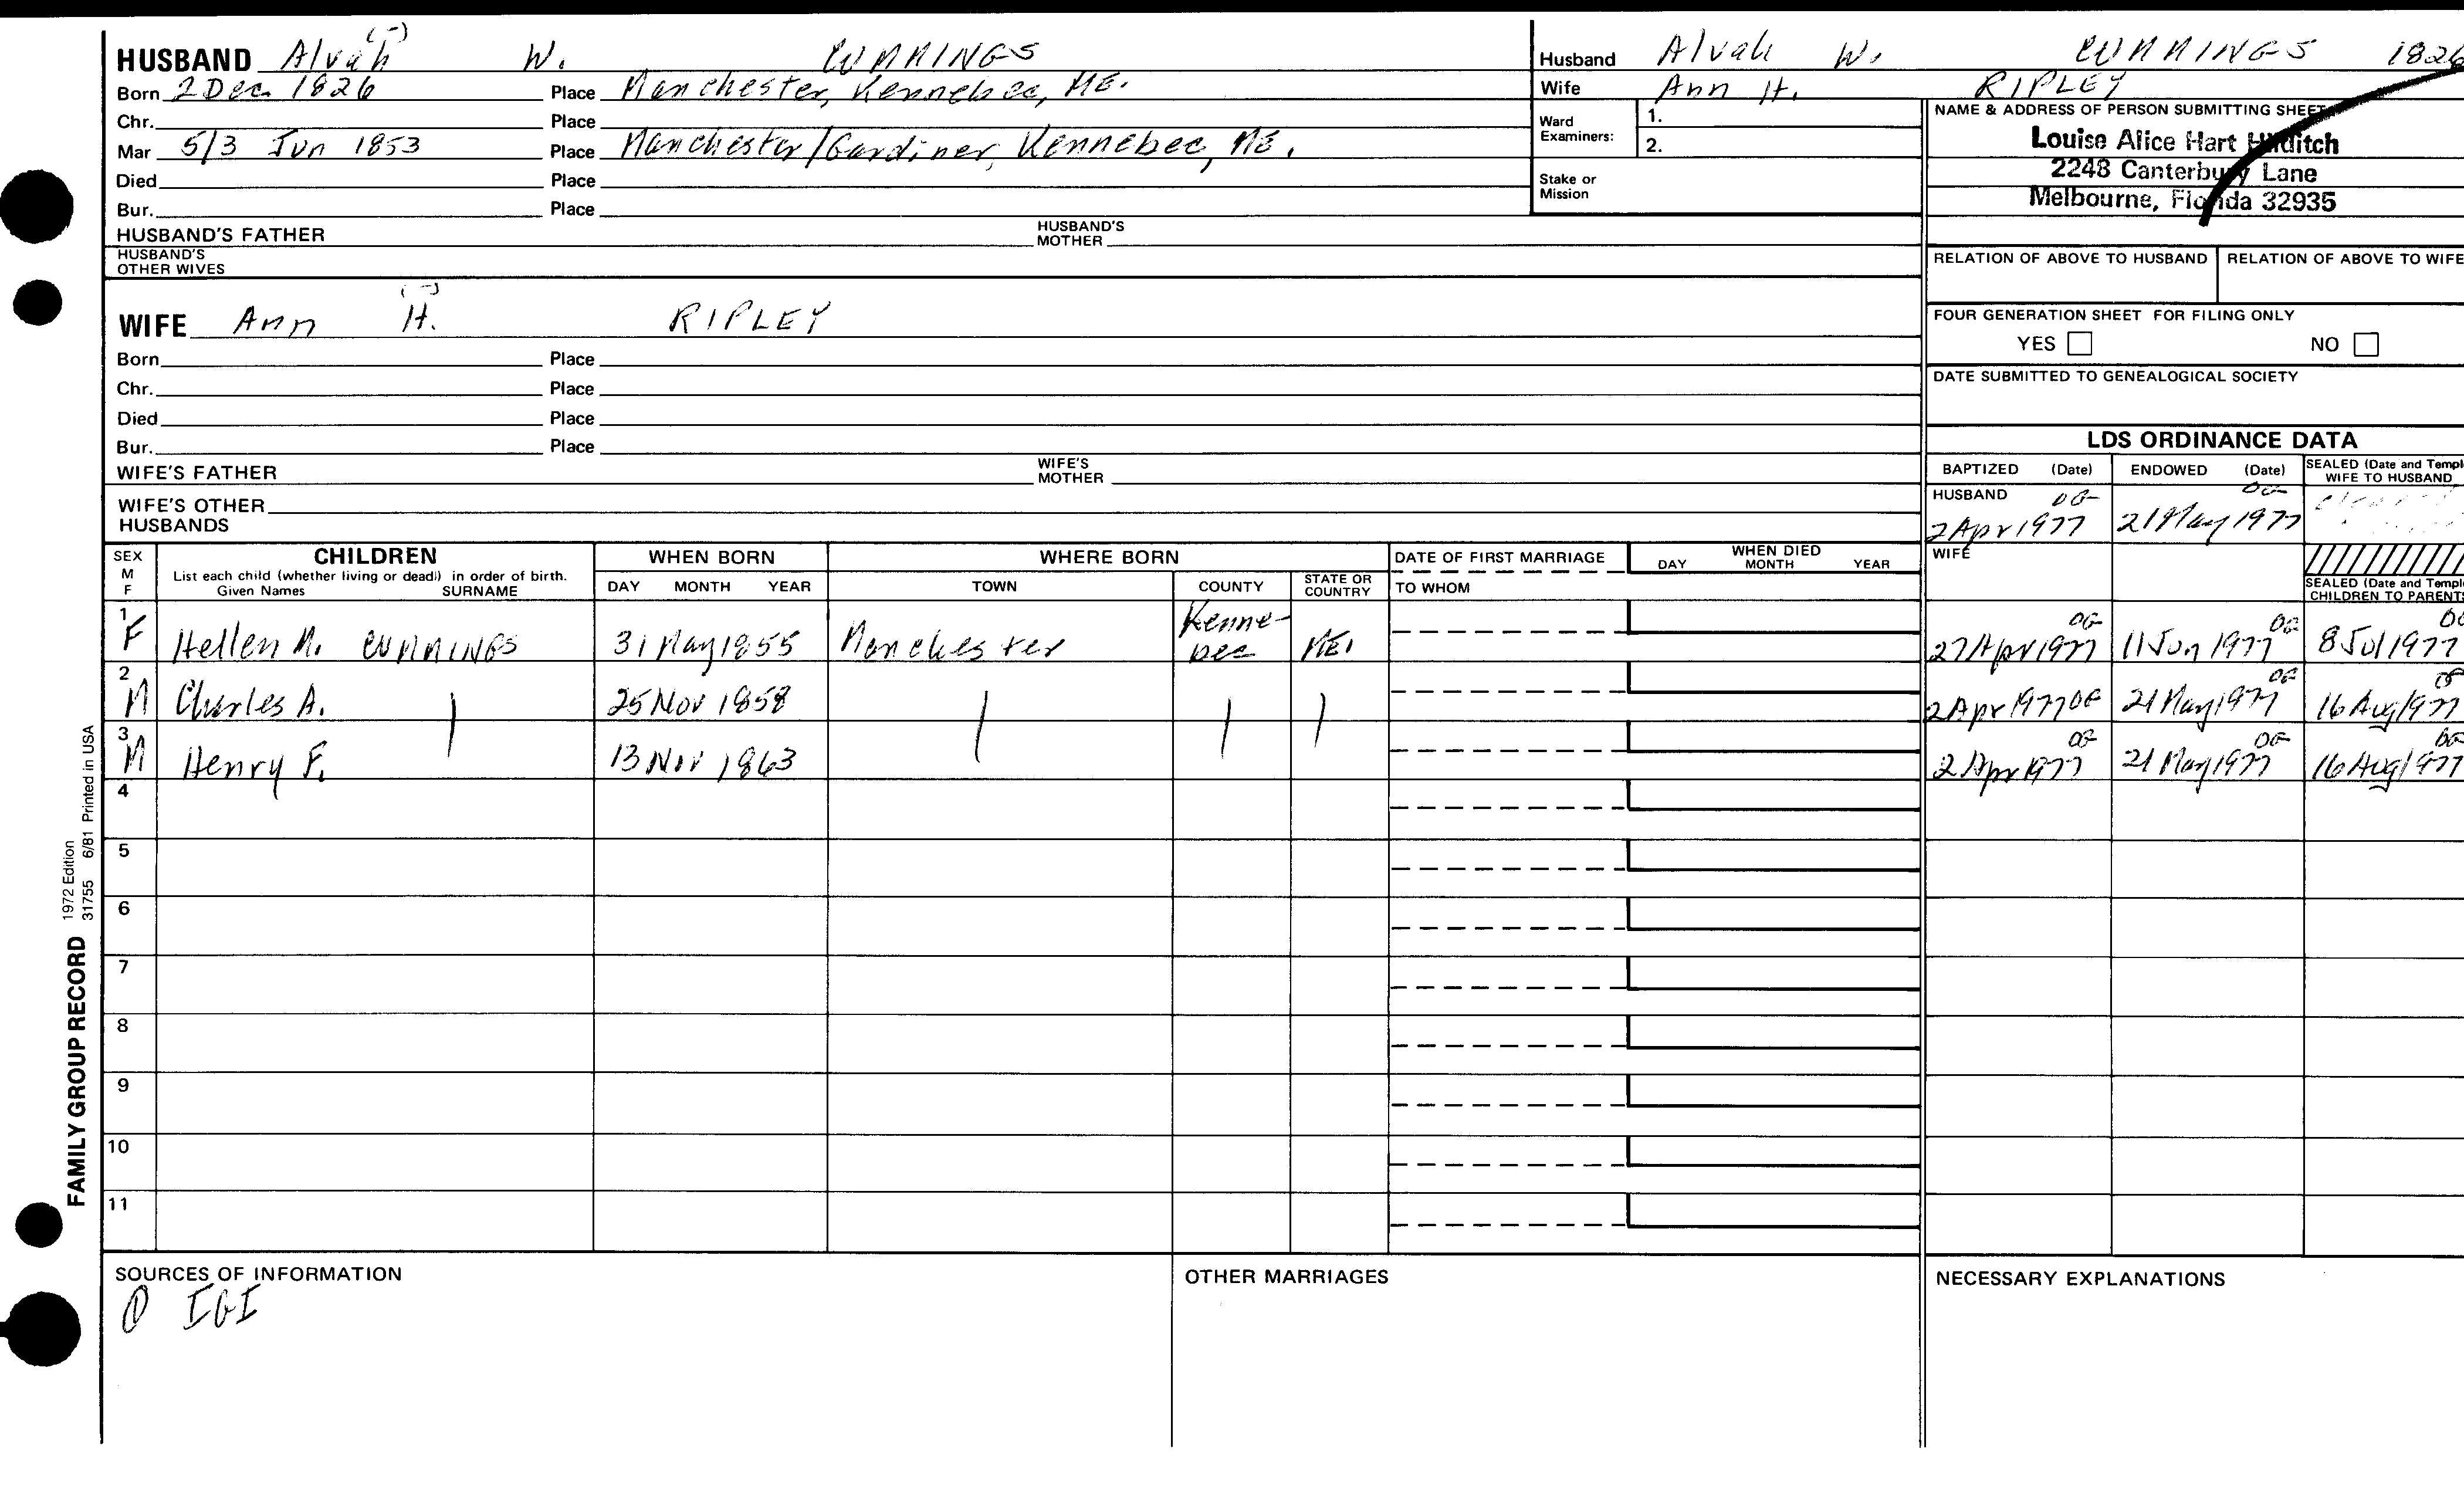 HUSBAND Alvah (-) W. CUMMINGS
Born 2 Dec 1826 Place Manchester, Kennebec, ME.
Chr. Place
Mar 5/3 Jun 1853 Place Manchester/Gardiner, Kennebec, ME.
Died Place
Bur. Place
HUSBAND'S FATHER HUSBAND'S MOTHER
HUSBAND'S OTHER WIVES
WIFE Ann H. (-) RIPLEY
Born Place
Chr. Place
Died Place
Bur. Place
WIFE'S FATHER WIFE'S MOTHER
WIFE'S OTHER HUSBANDS
Husband Alvah W. CUMMINGS 1826
Wife Ann H. RIPLEY
Ward Examiners: 1.
2.
Stake or Mission
NAME & ADDRESS OF PERSON SUBMITTING SHEET
Louise Alice Hart
2248 Canterbury Lane
Melbourne, Florida 32935
RELATION OF ABOVE TO HUSBAND RELATION OF ABOVE TO WIFE
FOUR GENERATION SHEET FOR FILING ONLY
YES NO
DATE SUBMITTED TO GENEALOGICAL SOCIETY
LDS ORDINANCE DATA
BAPTIZED (Date) ENDOWED (Date) SEALED (Date and Templ WIFE TO HUSBAND
HUSBAND OG OG
2 Apr 1977 21 May 1977
WIFE
SEALED (Date and Templ CHILDREN TO PARENTS
SEX M F CHILDREN WHEN BORN WHERE BORN DATE OF FIRST MARRIAGE WHEN DIED
List each child (whether living or dead) in order of birth.
Given Names SURNAME DAY MONTH YEAR TOWN COUNTY STATE OR COUNTRY TO WHOM DAY MONTH YEAR
1 F Hellen M. CUMMINGS 31 May 1855 Manchester Kenne-bec ME. 27 Apr 1977 OG 11 Jun 1977 OG 8 Jul 1977 OG
2 M Charles A. 25 Nov 1858 2 Apr 1977 OG 21 May 1977 OG 16 Aug 1977 OG
3 M Henry F. 13 Nov 1863 2 Apr 1977 OG 21 May 1977 OG 16 Aug 1977 OG
4
5
6
7
8
9
10
11
SOURCES OF INFORMATION
IGI
OTHER MARRIAGES
NECESSARY EXPLANATIONS
FAMILY GROUP RECORD 1972 Edition
31755 6/81 Printed in USA